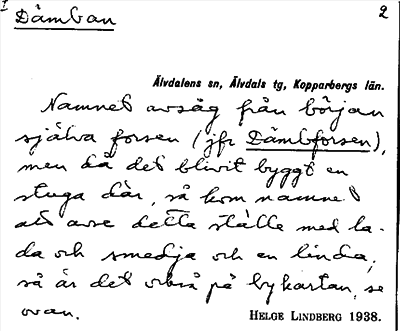 I
Dämban 2
Älvdalens sn, Älvdals tg, Kopparbergs län.
Namnet avsåg från början
själva forsen (jfr Dämbforsen),
men då det blivit byggt en
stuga där, så kom namnet
att avse detta ställe med la-
da och smedja och en linda,
så är det också på bykartan, se
ovan. HELGE LINDBERG 1938.